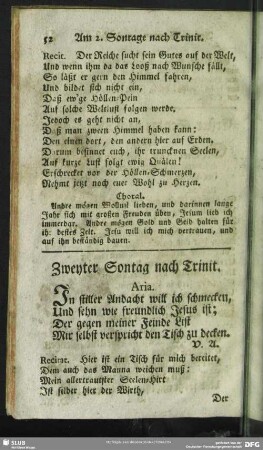 52 Am 2. Sontage nach Trinit.
Recit. Der Reiche sucht sein Gutes auf der Welt,
Und wenn ihm da das Looß nach Wunsche fällt,
So läßt er gern den Himmel fahren,
Und bildet sich nicht ein,
Daß ew'ge Höllen-Pein
Auf solche Weltlust folgen werde.
Jedoch es geht nicht an,
Daß man zween Himmel haben kann:
Den einen dort, den andern hier auf Erden,
Darum besinnet euch, ihr truncknen Seelen,
Auf kurze Lust folgt ewig Quälen!
Erschrecket vor der Höllen-Schmerzen,
Nehmt jetzt noch euer Wohl zu Herzen.
Choral.
Andre mögen Wollust lieben, und darinnen lange
Jahr sich mit großen Freuden üben, Jesum lieb ich
immerdar. Andre mögen Gold und Geld halten für
ihr bestes Zelt. Jesu will ich mich vertrauen, und
auf ihn beständig bauen.
Zweyter Sontag nach Trinit.
Aria.
In stiller Andacht will ich schmecken,
Und sehn wie freundlich Jesus ist;
Der gegen meiner Feinde List
Mir selbst verspricht den Tisch zu decken.
V. A.
Recitat. Hier ist ein Tisch für mich bereitet,
Dem auch das Manna weichen muß:
Mein allertreuster Seelen-Hirt
Ist selber hier der Wirth,
Der
SLUB